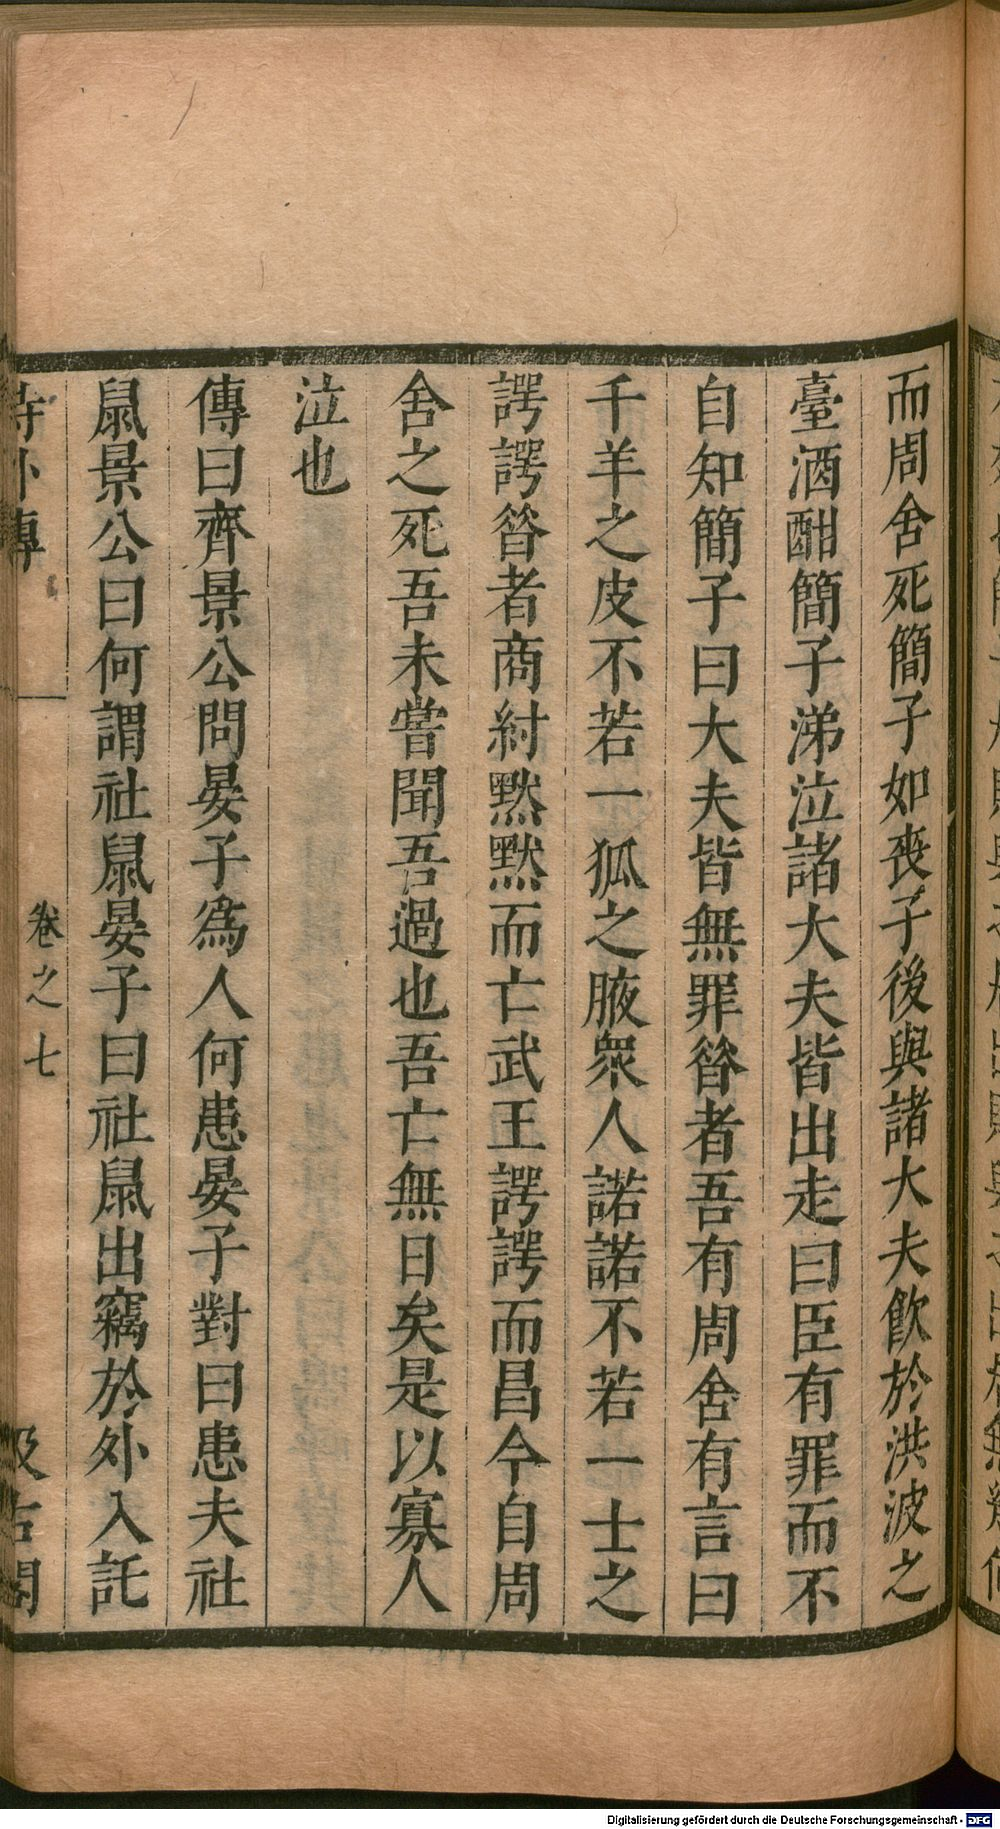 而周舍死簡子如喪子後與諸大夫飲於洪波之
臺酒酣簡子涕泣諸大夫皆出走曰臣有罪而不
自知簡子曰大夫皆無罪昝者吾有周舍有言曰
千羊之皮不若一狐之腋眾人諾諾不若一士之
諤諤昝者商紂黙黙而亡武王諤諤而昌今自周
舍之死吾未嘗聞吾過也吾亡無日矣是以寡人
泣也
傳曰齊景公問晏子爲人何患晏子對曰患夫社
鼠景公曰何謂社鼠晏子曰社鼠出竊於外入託
詩外傳 卷之七 汲古閣
Digitalisierung gefördert durch die Deutsche Forschungsgemeinschaft - DFG